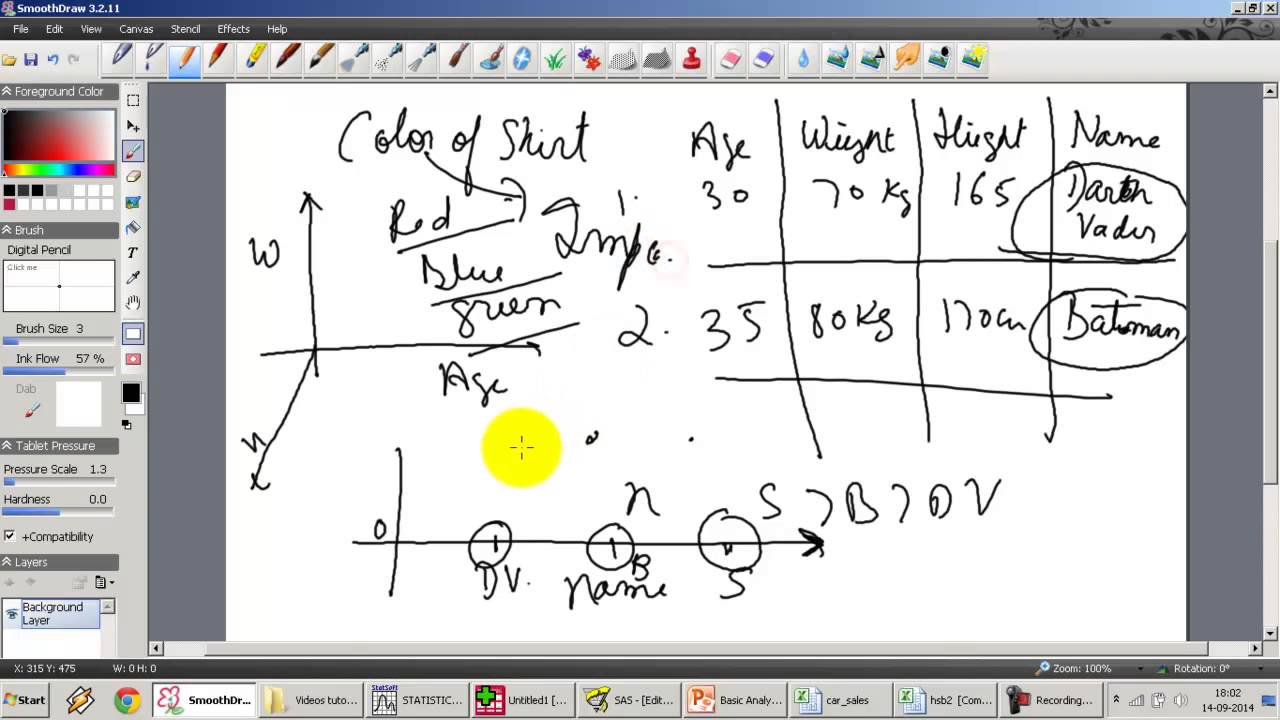 SmoothDraw 3.2.11
File Edit View Canvas Stencil Effects Help
Foreground Color
Brush
Digital Pencil
Click me
Brush Size 3
Ink Flow 57 %
Dab
Tablet Pressure
Pressure Scale 1.3
Hardness 0.0
+Compatibility
Layers
Background
Layer
Color of Shirt
Red
Blue
green
W
Age
H
Age Weight Height Name
1. 30 70 Kg 165 Darth
Vader
2. 35 80 Kg 170 cm Batman
N
S > B > D V
0
DV. B S
Name
X: 315 Y: 475 W: 0 H: 0 Zoom: 100% Rotation: 0°
Start SmoothDra... Videos tuto... STATISTIC... Untitled1 [... SAS - [Edit... Basic Analy... car_sales hsb2 [Com... Recording... 18:02
14-09-2014